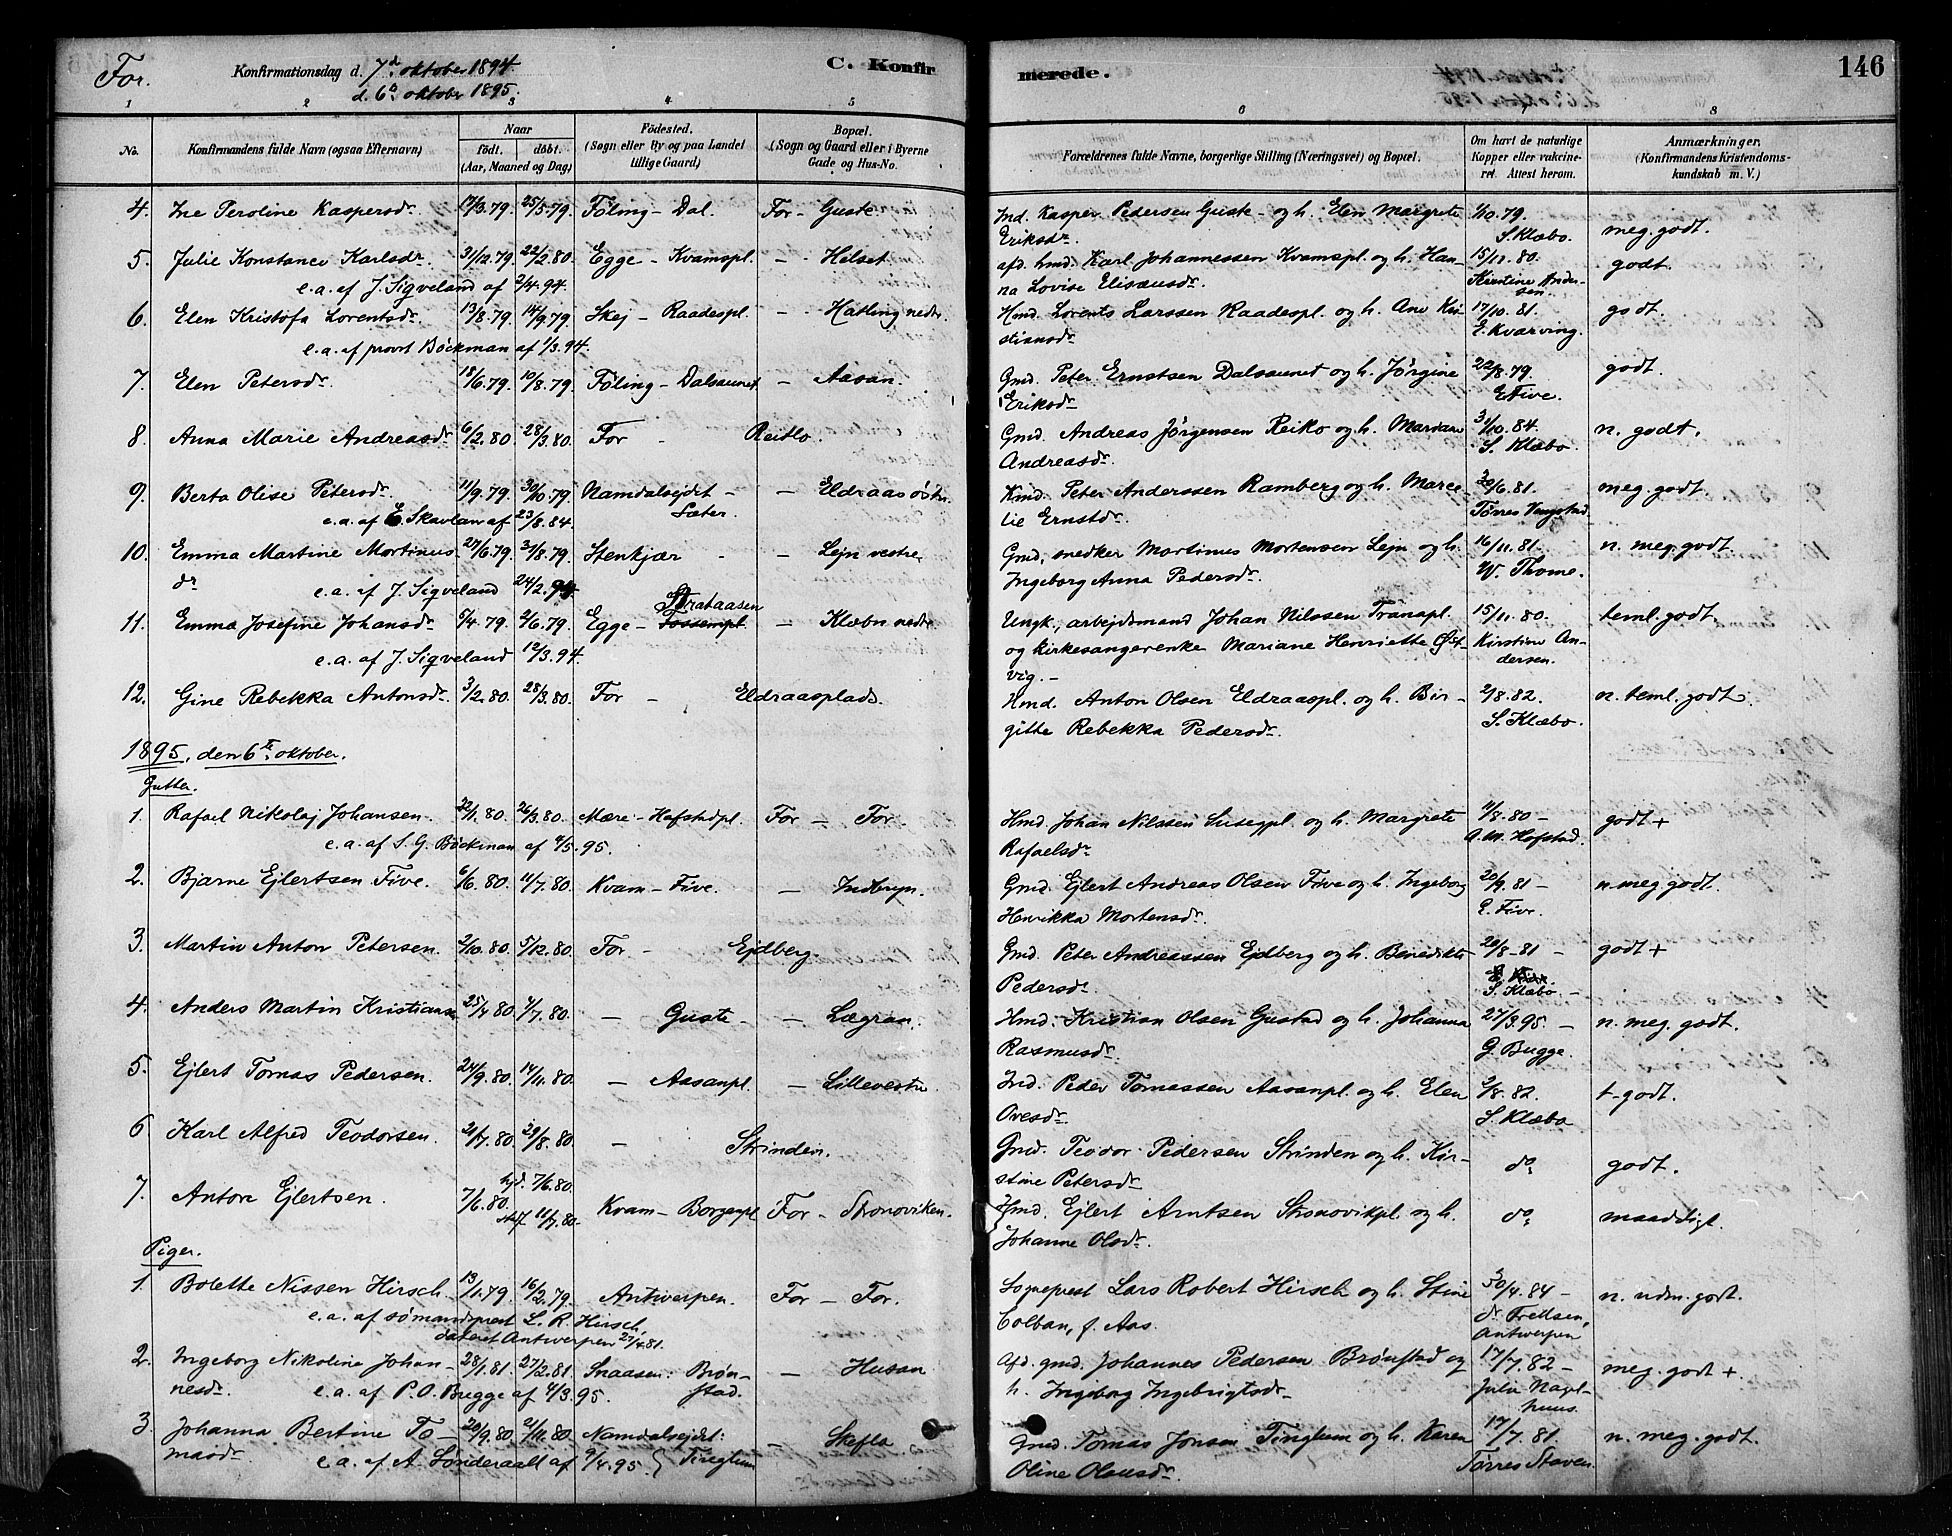 For.
Konfirmationsdag d. 7d oktober 1894.
d. 6te oktober 1895.
C. Konfirmerede.
146
1 2 3 4 5 6 7 8
No.
Konfirmandens fulde Navn (ogsaa Efternavn)
Naar
födt. döbt.
(Aar, Maaned og Dag)
Födested.
(Sogn eller By og paa Landet tillige Gaard)
Bopæl.
(Sogn og Gaard eller i Byerne Gade og Hus-No.
Forældrenes fulde Navne, borgerlige Stilling (Næringsvei) og Bopæl.
Om havt de naturlige Kopper eller vakcineret. Attest herom.
Anmærkninger.
(Konfirmandens Kristendomskundskab m. V.)
4. Ine Peroline Kaspersdr. 17/3.79. 25/5.79. Föling - Dal. For - Guste Ind. Kasper Pedersen Guste - og h. Elen Margrete 1/10.79. meg. godt.
Eriksdr. S. Klæbo.
5. Julie Konstance Karlsdr. 31/12.79. 22/2.80. Egge - Kvamspl. - Helset afd. hmd. Karl Johannessen Kvamspl. og h. Han- 15/11.80. godt.
e.a. af J. Sigveland af 2/4.94. na Lovise Elisæusdr. Kirstine Andersen.
6. Elen Kristofa Lorentsdr. 13/8.79. 14/9.79. Skej - Raadespl. - Hatling nedr. Hmd. Lorents Larssen Raadespl. og h. Ane Kri- 17/10.81. godt.
e.a. af provst Böckman af 1/3.94. stiansdr. E. Kværving.
7. Elen Petersdr. 18/6.79. 10/8.79. Föling - Dalsaunet - Aasan. Gmd. Peter Ernstsen Dalsaunet og h. Jörgine 22/8.79. godt.
Eriksdr. E. Five.
8. Anna Marie Andreasdr. 6/2.80. 28/3.80. For - Reitlo. Gmd. Andreas Jörgensen Reiko og h. Marian 31/10.84. n. godt.
Andreasdr. S. Klæbo.
9. Berta Olise Petersdr. 11/9.79. 30/10.79. Namdalsejdet - - Eldraas östr. Kmd. Peter Anderssen Ramberg og h. Marce- 30/6.81. meg. godt.
e.a. af E. Skavlan af 23/8.84. Sæter. lie Ernstdr. Törres Vengstad
10. Emma Martine Mortinus- 27/6.79. 31/8.79. Stenkjær - - Lejn vestre Gmd. snedker Mortinus Mortensen Lejn og h. 16/11.81. n. meg. godt.
dr e.a. af J. Sigveland 24/2.94 Ingeborg Anna Pedersdr. W. Thome.
11. Emma Josefine Johansdr. 5/4.79. 2/6.79. Egge - - Klæbu nedr Ungk., arbejdsmand Johan Nilssen Tranapl. 15/11.80. teml. godt.
e.a. af J. Sigveland 12/3.94. og kirkesangerenke Mariane Henriette Öst- Kirstine Andersen.
vig. -
12. Gine Rebekka Antonsdr. 3/2.80. 28/3.80. For - Eldraasplads. Hmd. Anton Olsen Eldraaspl. og h. Bir- 2/8.82. n. teml. godt.
gitte Rebekka Pedersdr. S. Klæbo.
1895, den 6te oktober.
Gutter.
1. Rafael Nikolaj Johansen. 22/1.80. 26/3.80. Mære - Hofstadpl. For - For. Hmd. Johan Nilssen Susegpl. og h. Margrete 11/8.80 - godt +
e.a. af S. G. Böckman af 4/5.95. Rafaelsdr. A.M. Hofstad.
2. Bjarne Ejlertsen Five. 6/6.80. 11/7.80. Kvam - Five. - Indbryn. Gmd. Ejlert Andreas Olsen Five og h. Ingeborg 20/9.81 - n. meg. godt.
Henrikka Mortensdr. E. Five.
3. Martin Anton Petersen. 2/10.80. 5/12.80. For - Ejdberg. Gmd. Peter Andreassen Ejdberg og h. Benedikte 20/8-81 - godt +
Pedersdr. S. Klæbo -
4. Anders Martin Kristiansn 25/4.80. 4/7.80. - Guste - - Lægran. Hmd. Kristian Olsen Gustad og h. Johanna 27/3.95. - n. meg. godt.
Rasmusdr. G. Bugge.
5. Ejlert Tomas Pedersen. 24/9.80. 14/11.80. - Aasanpl. - Lillevestre Ind. Peder Tomassen Aasanpl. og h. Elen 2/8.82. t-godt.
Ovesdr. S. Klæbo
6 Karl Alfred Teodorsen. 21/7.80. 29/8.80. - Strinden. Gmd. Teodor Pedersen Strinden og h. Kir- do. godt.
stine Petersdr
7. Antore Ejlertsen. 7/6.80. hjd. 7/6.80. stf 11/7.80. Kvam - Borgenpl For - Stronoviken. Hmd. Ejlert Arntsen Stronovikpl. og h. do. maadeligt.
Johanne Olsdr.
Piger.
1. Bolette Nissen Hirsch. 13/1.79. 16/2.79. Antwerpen. For - For. Sogneprest Lars Robert Hirsch og h. Stine 30/4.84 - n. udm. godt.
e.a. af sömandsprest L. R. Hirsch, Colban, f. Aas. dr Fretlsen,
dateret Antwerpen 27/4.81. Antwerpen
2. Ingeborg Nikoline Johan- 28/1.81. 27/2.81. Snaasen: Brön- - Husan Afd. gmd. Johannes Pedersen Brönstad og 17/7.82 - meg. godt +.
nesdr. e.a. af P. O. Bugge af 4/3.95. stad. h. Ingeborg Ingebrigtsdr - Julia Nagelhuus.
3. Johanna Bertine To- 20/9.80. 21/11.80. Namdalsejdet: - Skefte Gmd. Tomas Jonsen Tinglum og h. Karen 17/7.81. n. meg. godt.
masdr. e.a. af A. Sönderaall af 9/4.95. Tinglum Oline Olausdr. Törres Staven.